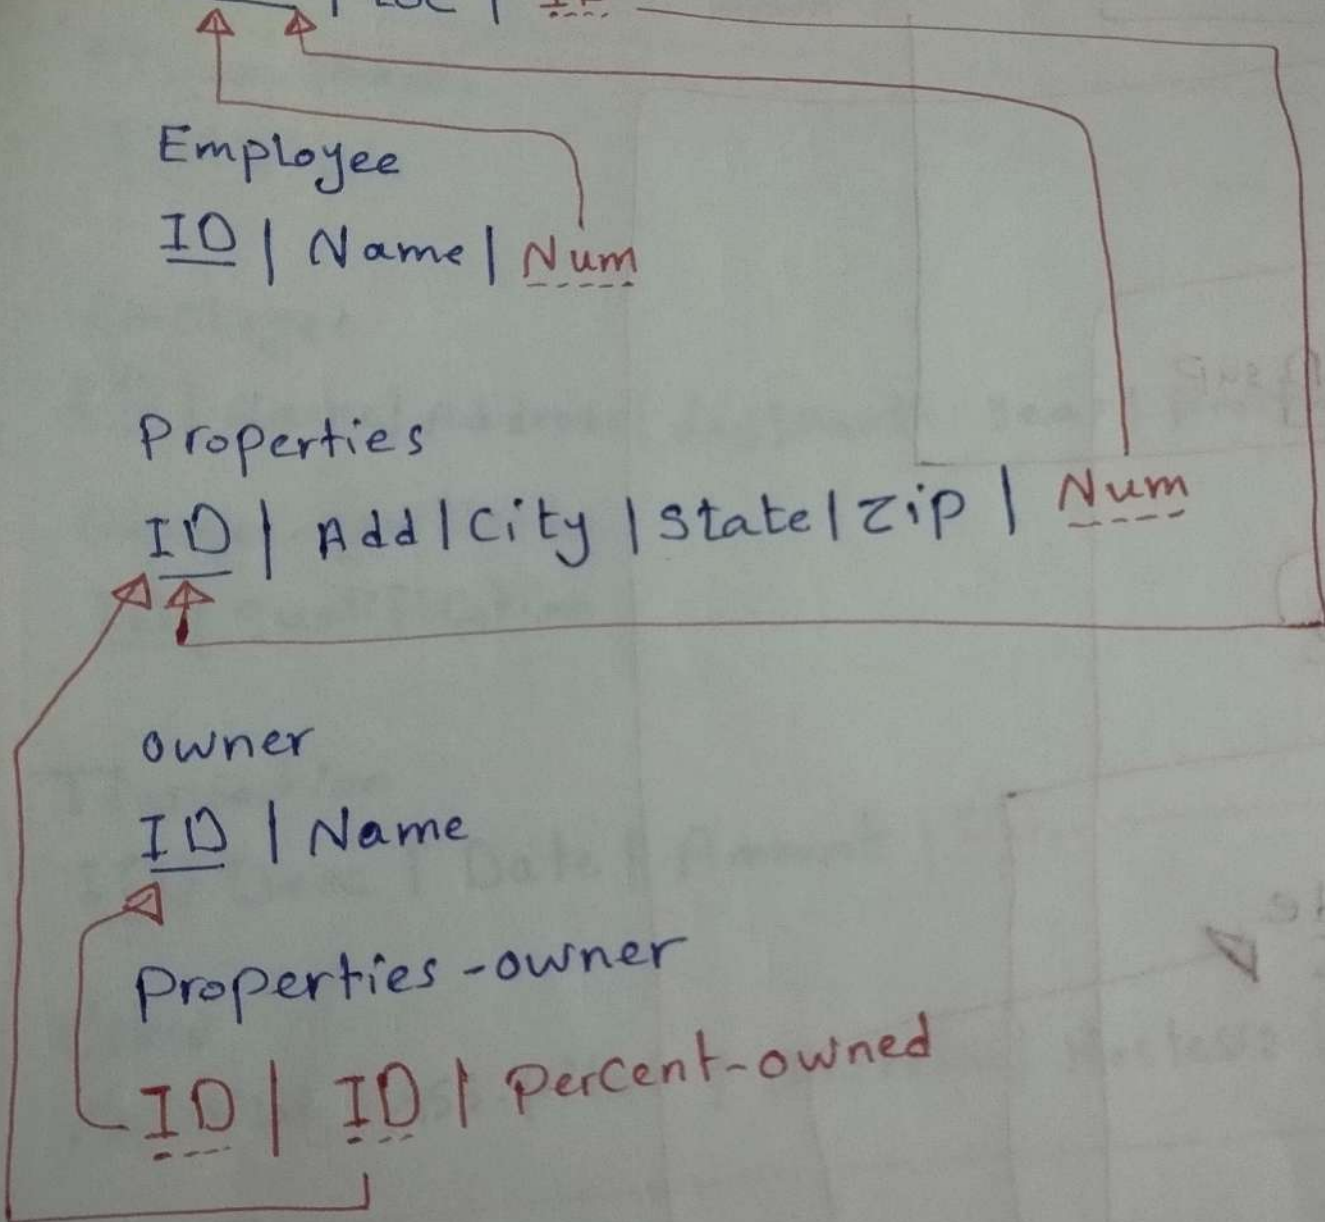 | Loc |
Employee
ID | Name | Num
Properties
ID | Add | City | State | Zip | Num
owner
ID | Name
Properties-owner
ID | ID | Percent-owned